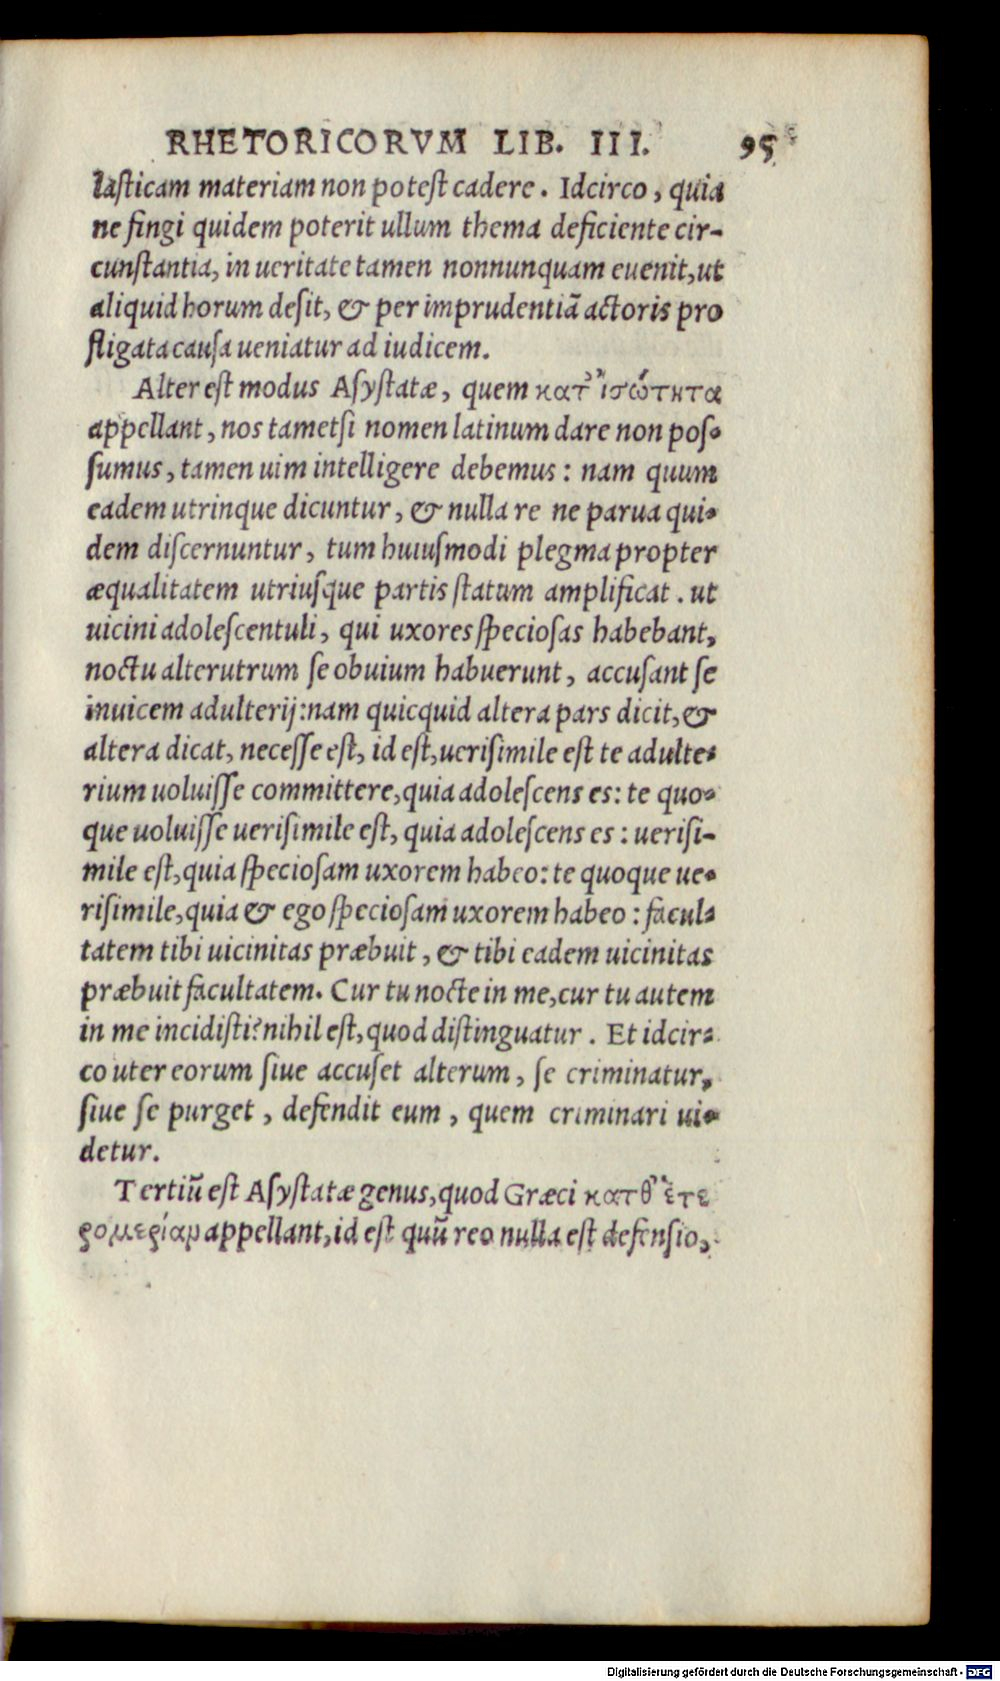 RHETORICORVM LIB. III. 95
lasticam materiam non potest cadere. Idcirco, quia
ne fingi quidem poterit ullum thema deficiente cir-
cunstantia, in ueritate tamen nonnunquam euenit, ut
aliquid horum desit, & per imprudentiā actoris pro
fligata causa ueniatur ad iudicem.
Alter est modus Asystatæ, quem κατ' ἰσώτητα
appellant, nos tametsi nomen latinum dare non pos-
sumus, tamen uim intelligere debemus: nam quum
eadem utrinque dicuntur, & nulla re ne parua qui-
dem discernuntur, tum huiusmodi plegma propter
æqualitatem utriusque partis statum amplificat. ut
uicini adolescentuli, qui uxores speciosas habebant,
noctu alterutrum se obuium habuerunt, accusant se
inuicem adulterij: nam quicquid altera pars dicit, &
altera dicat, necesse est, id est, uerisimile est te adulte-
rium uoluisse committere, quia adolescens es: te quo-
que uoluisse uerisimile est, quia adolescens es: uerisi-
mile est, quia speciosam uxorem habeo: te quoque ue-
risimile, quia & ego speciosam uxorem habeo: facul-
tatem tibi uicinitas præbuit, & tibi eadem uicinitas
præbuit facultatem. Cur tu nocte in me, cur tu autem
in me incidisti? nihil est, quod distinguatur. Et idcir-
co uter eorum siue accuset alterum, se criminatur,
siue se purget, defendit eum, quem criminari ui-
detur.
Tertiū est Asystatæ genus, quod Græci κατθ' ἑτε
ρομερίαν appellant, id est quū reo nulla est defensio,
Digitalisierung gefördert durch die Deutsche Forschungsgemeinschaft - DFG